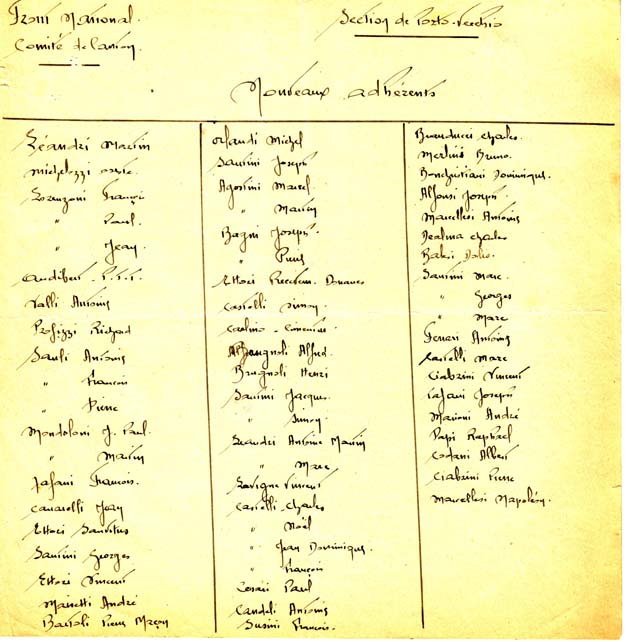 Front National.
Comité de Canton.
Section de Porto-Vecchio
Nouveaux adhérents
Léandri Martin
Michelozzi
Lorenzoni François
" Paul.
" Jean.
Audibert P.T.T.
Valli Antoine
Profizzi Richard
Santi Antoine
" François
" Pierre
Mondoloni J. Paul.
" Martin
Tafani François.
Canarelli Jean
Ettori Sauveur
Santini Georges
Ettori Vincent
Marietti André
Bartoli Pierre Maçon
Orlandi Michel
Santini Joseph
Agostini Marcel
" Martin
Bagni Joseph.
" Pierre
Ettori Receveur Douanes
Castelli Simon
Alfred
Brugnoli Henri
Santini Jacques.
" Simon
Léandri Antoine Martin
" Marc
Lavigne Vincent
Castelli Charles
" Noël
" Jean Dominique.
" François
Cesari Paul
Candeli Antoine
Susini François.
Branducci Charles.
Merlini Bruno.
Bonchristiani Dominique.
Alfonsi Joseph.
Marcellesi Antoine
Charles
Santini Marc.
" Georges
" Marc
Antoine
Castelli Marc
Ciabrini Vincent
Tafani Joseph
Marioni André
Papi Raphael
Codani Albert
Ciabrini Pierre
Marcellesi Napoléon.